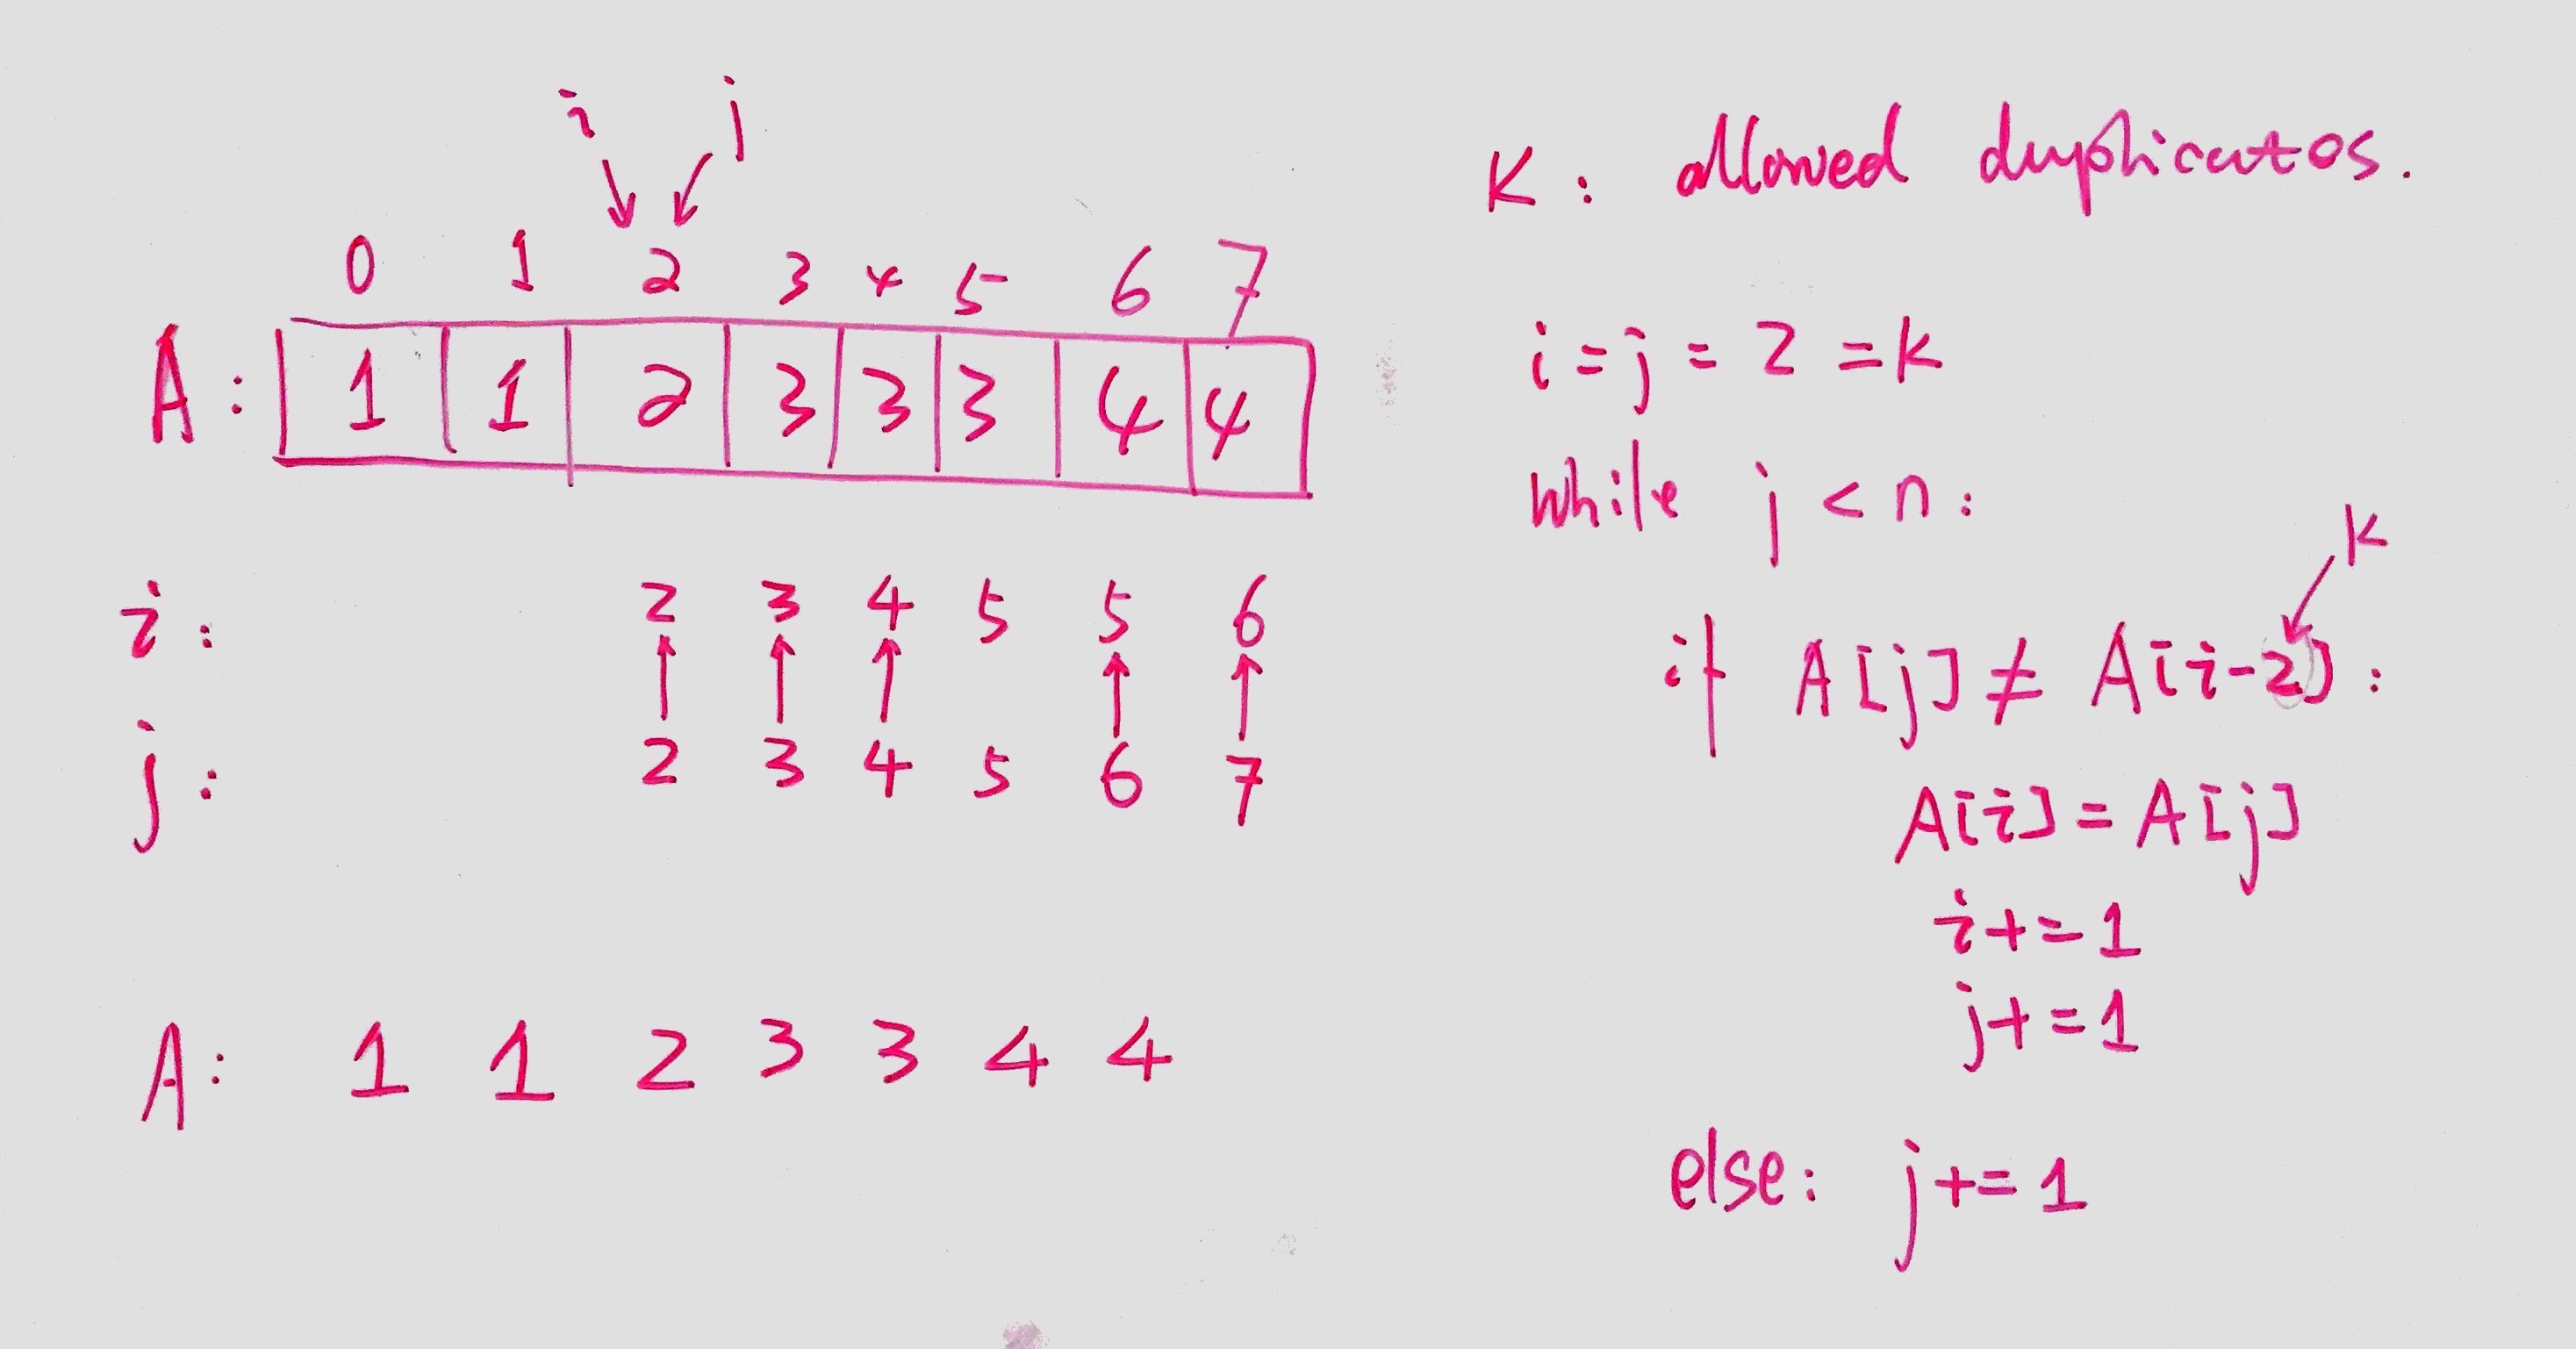 i j
0 1 2 3 4 5 6 7
A: 1 1 2 3 3 3 4 4
i: 2 3 4 5 5 6
j: 2 3 4 5 6 7
A: 1 1 2 3 3 4 4
K: allowed duplicates.
i = j = 2 = K
while j < n:
K
if A[j] ≠ A[i-2]:
A[i] = A[j]
i += 1
j += 1
else: j += 1